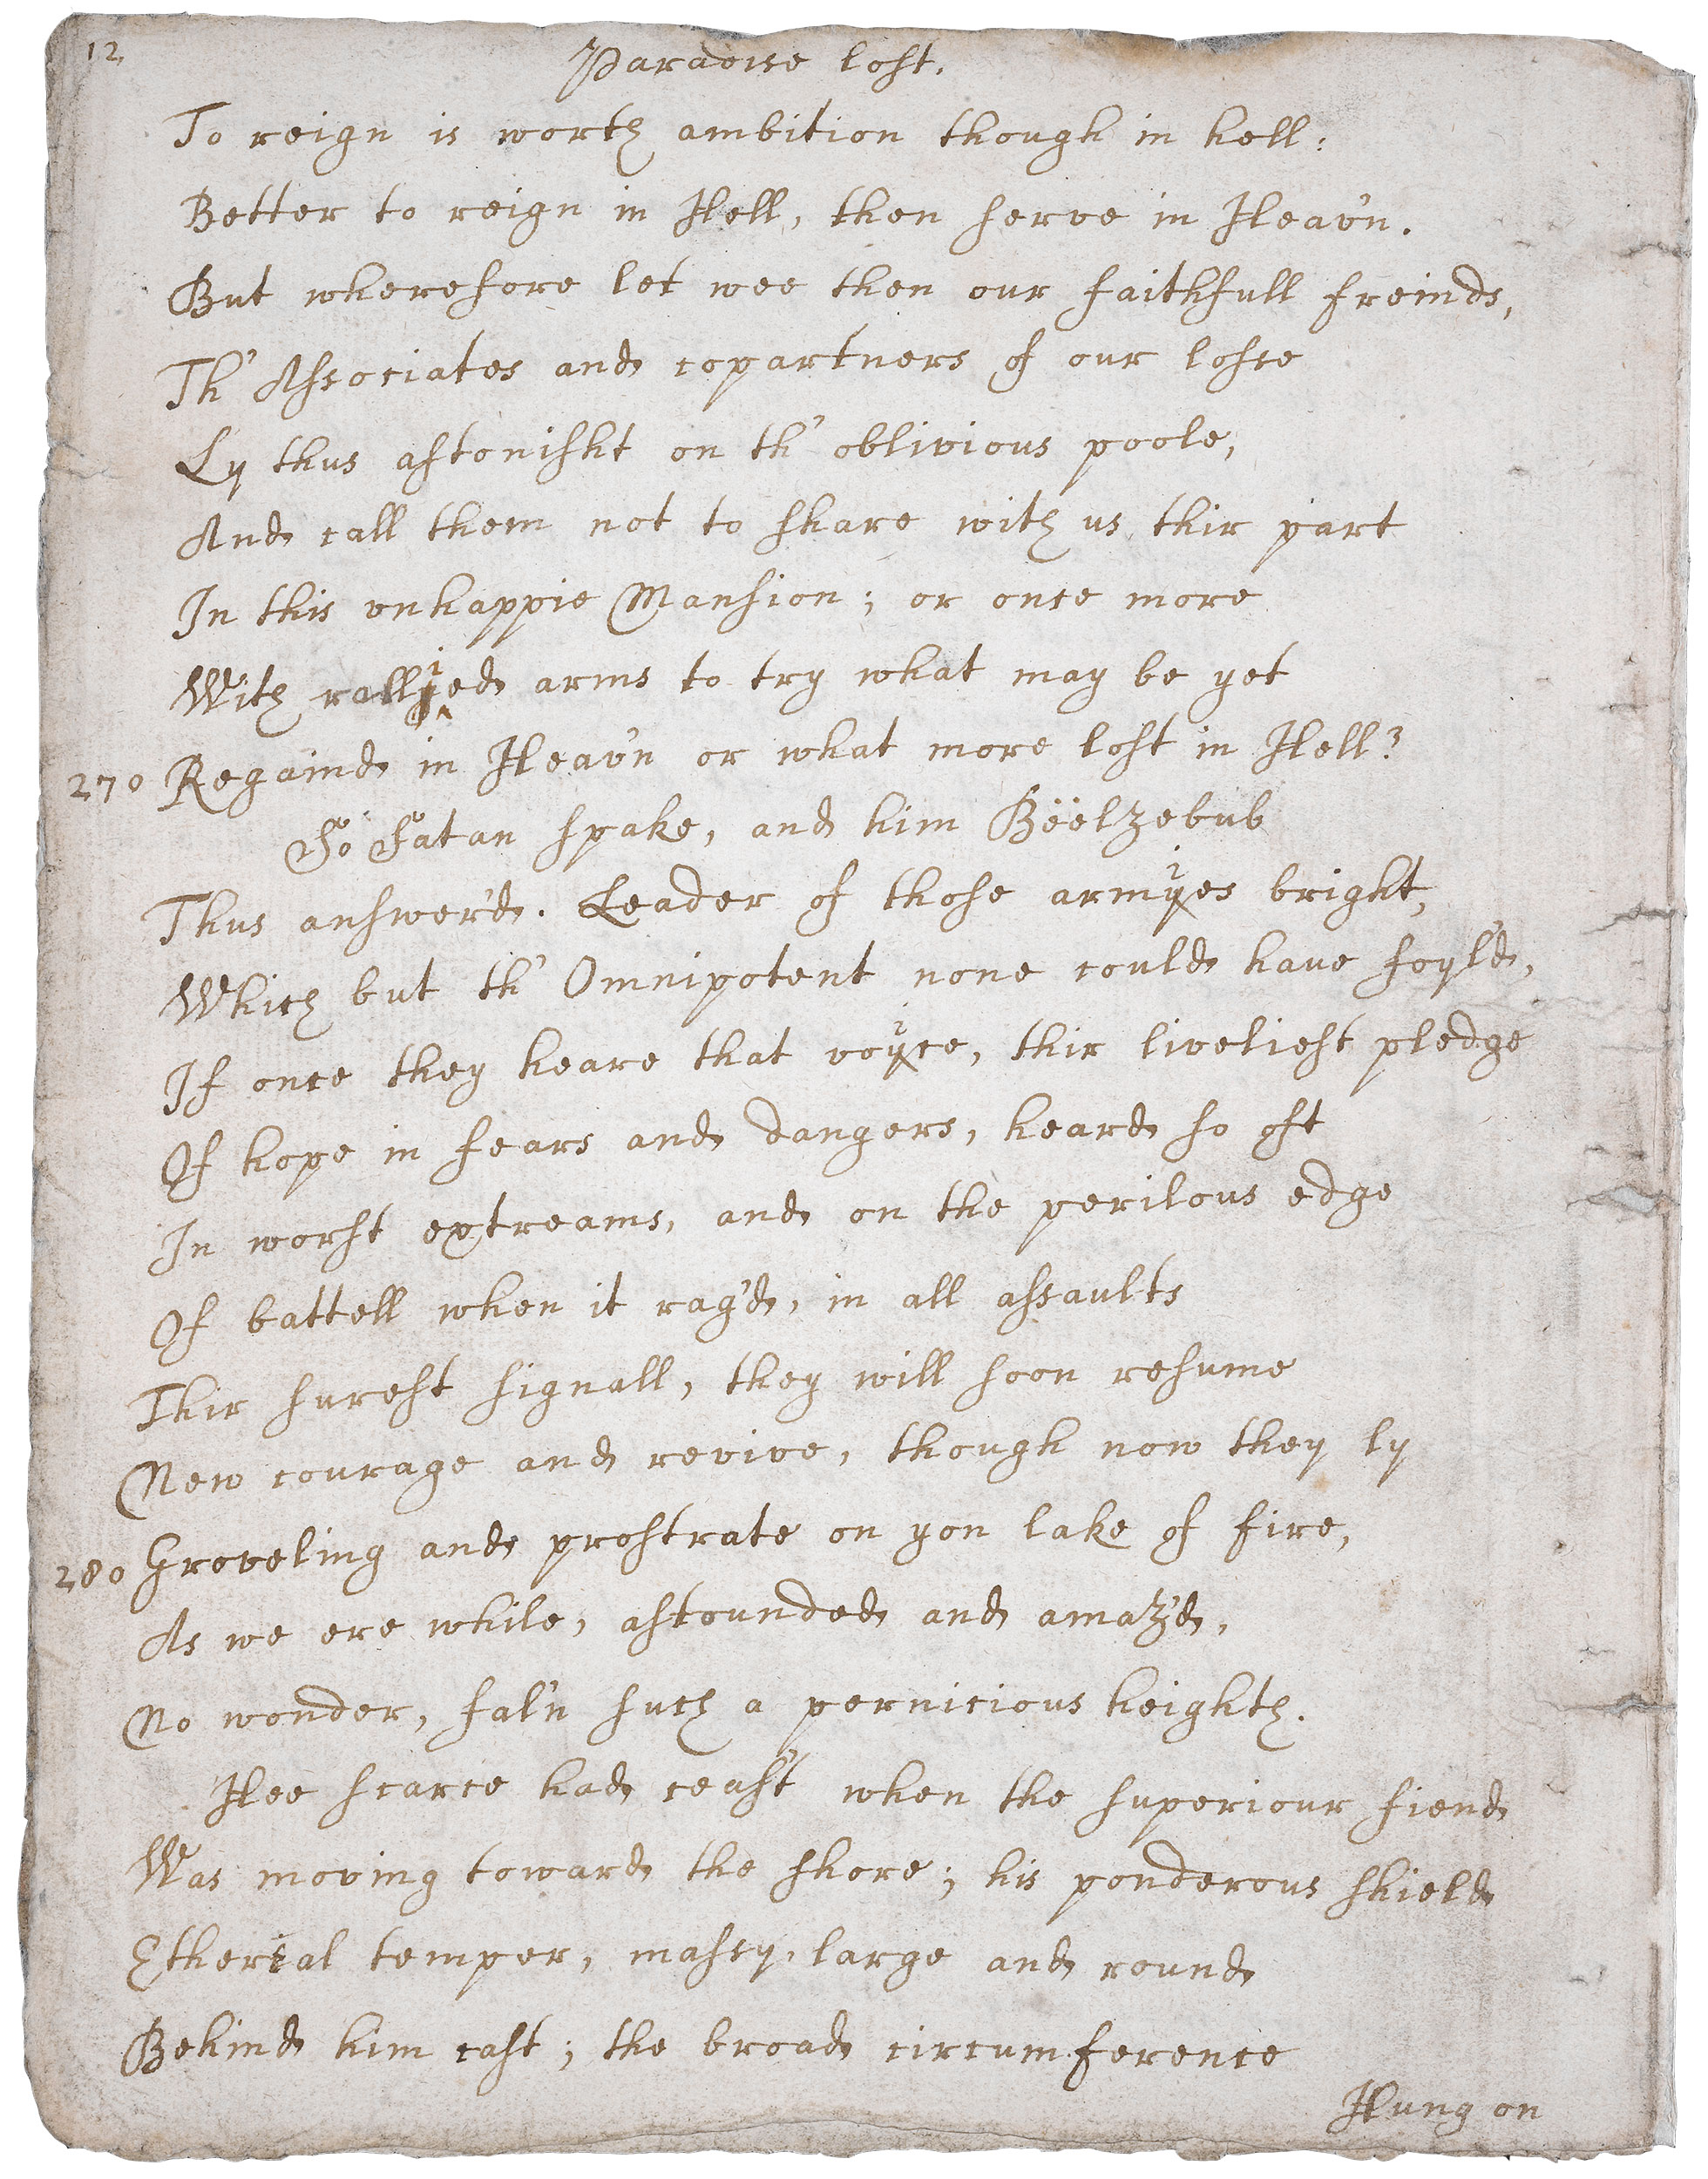 12
Paradise lost.
To reign is worth ambition though in hell:
Better to reign in Hell, then serve in Heav'n.
But wherefore let wee then our faithfull freinds,
Th' Associates and copartners of our losse
Ly thus astonisht on th' oblivious poole,
And call them not to share with us thir part
In this vnhappie Mansion; or once more
With rallyied arms to try what may be yet
270 Regaind in Heav'n or what more lost in Hell?
So Satan spake, and him Bëëlzebub
Thus answer'd. Leader of those armyies bright,
Which but th' Omnipotent none could haue foyl'd,
If once they heare that voyice, thir liveliest pledge
Of hope in fears and dangers, heard so oft
In worst extreams, and on the perilous edge
Of battell when it rag'd, in all assaults
Thir surest signall, they will soon resume
New courage and revive, though now they ly
280 Groveling and prostrate on yon lake of fire,
As we ere while, astounded and amaz'd,
No wonder, fal'n such a pernicious heighth.
Hee scarce had ceas't when the superiour fiend
Was moving toward the shore; his ponderous shield
Ethereal temper, massy, large and round
Behind him cast; the broad circumference
Hung on